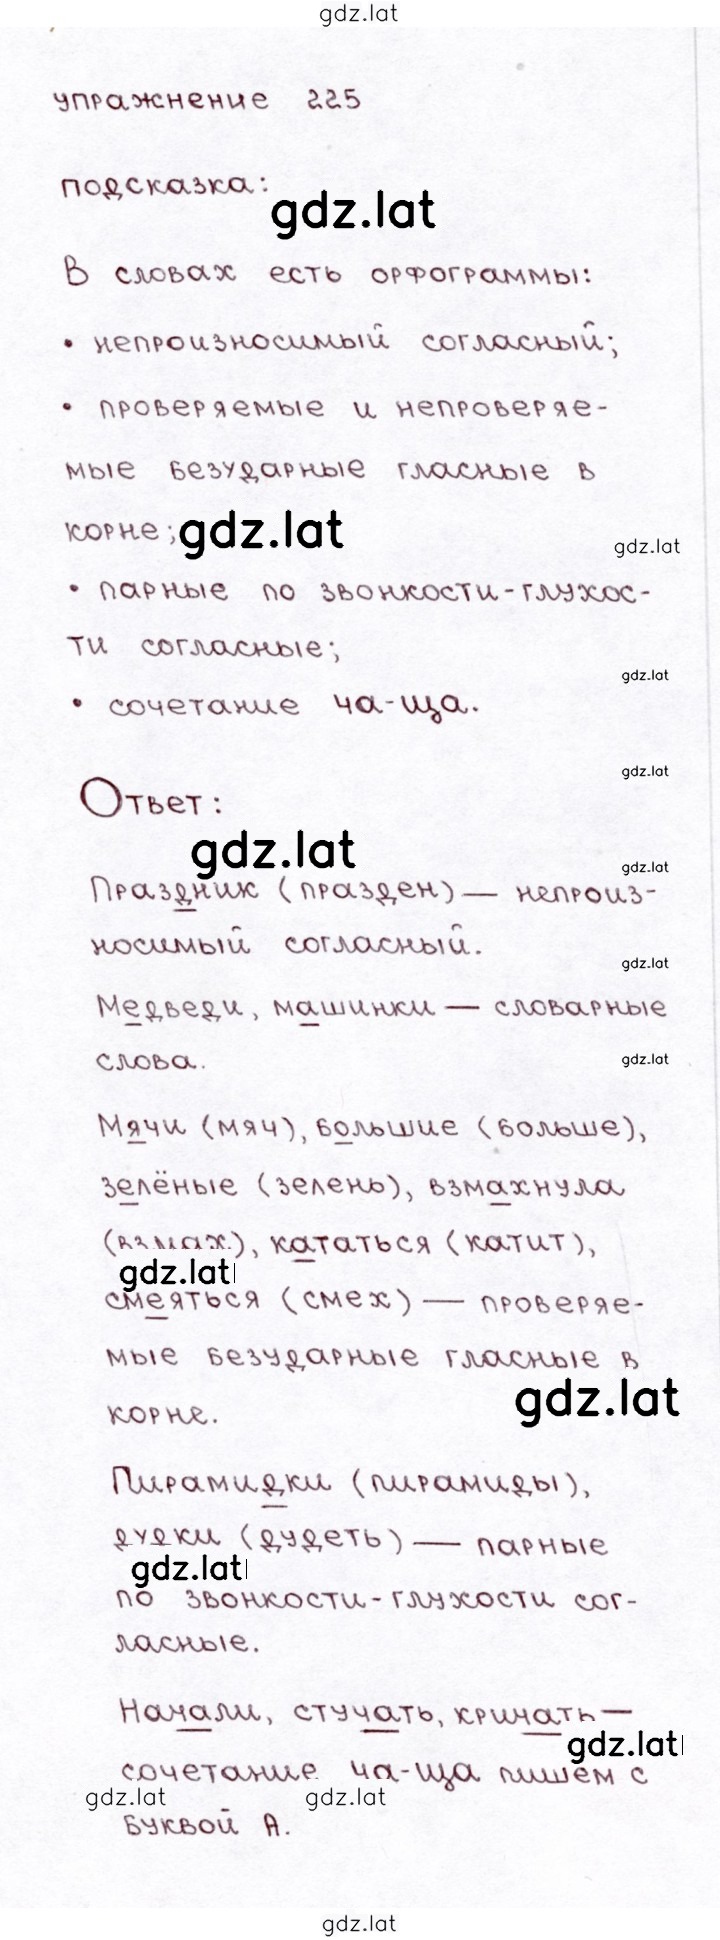 gdz.lat
упражнение 225
подсказка:
gdz.lat
В словах есть орфограммы:
• непроизносимый согласный;
• проверяемые и непроверяе-
мые безударные гласные в
корне;
gdz.lat
gdz.lat
• парные по звонкости-глухос-
ти согласные;
gdz.lat
• сочетание ча-ща.
gdz.lat
Ответ:
gdz.lat
gdz.lat
Праздник (празден) — непроиз-
носимый согласный.
gdz.lat
Медведи, машинки — словарные
слова.
gdz.lat
Мячи (мяч), большие (больше),
зелёные (зелень), взмахнула
(взмах), кататься (катит),
gdz.lat
смеяться (смех) — проверяе-
мые безударные гласные в
gdz.lat
корне.
Пирамидки (пирамиды),
дудки (дудеть) — парные
gdz.lat
по звонкости-глухости сог-
ласные.
Начали, стучать, кричать —
gdz.lat
сочетание ча-ща пишем с
gdz.lat gdz.lat
буквой А.
gdz.lat